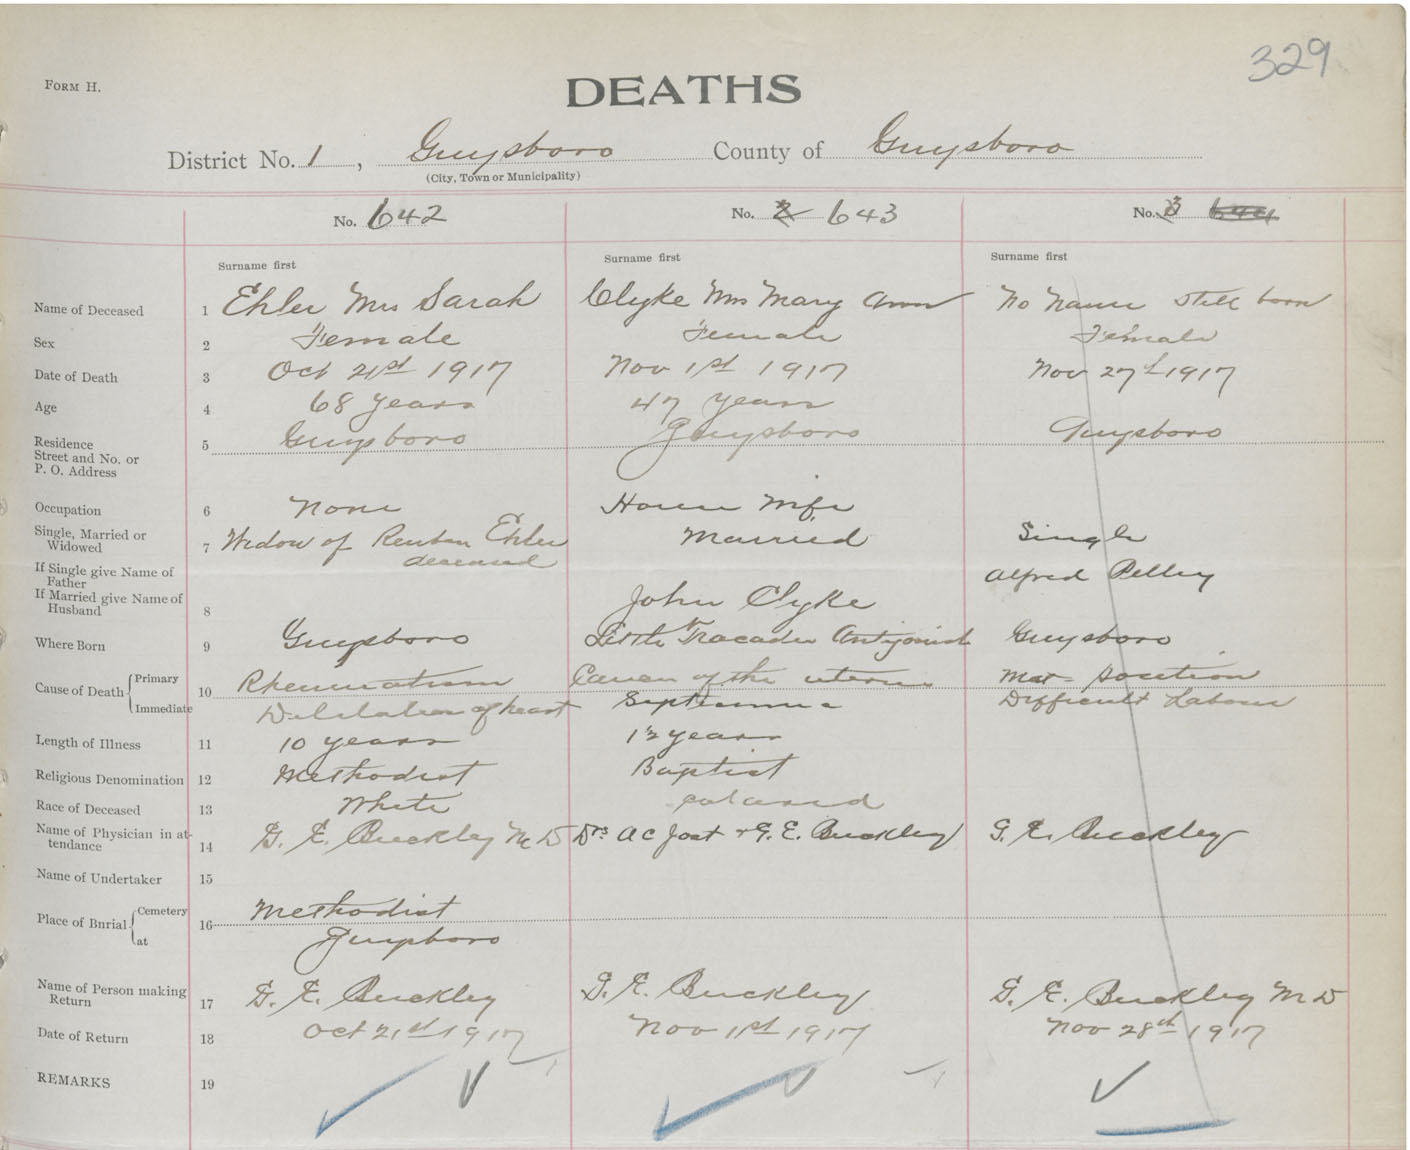 329
FORM H.
DEATHS
District No. 1, Guysboro County of Guysboro
(City, Town or Municipality)
No. 642 No. 2 643 No. 3 644
Surname first Surname first Surname first
Name of Deceased 1 Ehler Mrs Sarah Clyke Mrs Mary Ann No Name Still born
Sex 2 Female Female Female
Date of Death 3 Oct 21st 1917 Nov 1st 1917 Nov 27th 1917
Age 4 68 years 47 years
Residence Street and No. or P. O. Address 5 Guysboro Guysboro Guysboro
Occupation 6 None House Wife
Single, Married or Widowed 7 Widow of Reuben Ehler deceased Married Single
If Single give Name of Father Alfred Pelley
If Married give Name of Husband 8 John Clyke
Where Born 9 Guysboro Little Tracadie Antigonish Guysboro
Cause of Death Primary 10 Rheumatism Cancer of the uterus Mal- position
Immediate Dilatation of heart Septicaemia Difficult Labour
Length of Illness 11 10 years 1½ years
Religious Denomination 12 Methodist Baptist
Race of Deceased 13 White colored
Name of Physician in attendance 14 G. E. Buckley M D Drs A C Jost + G. E. Buckley G. E. Buckley
Name of Undertaker 15
Place of Bnrial Cemetery 16 Methodist
at Guysboro
Name of Person making Return 17 G. E. Buckley G. E. Buckley G. E. Buckley M D
Date of Return 18 Oct 21st 1917 Nov 1st 1917 Nov 28th 1917
REMARKS 19